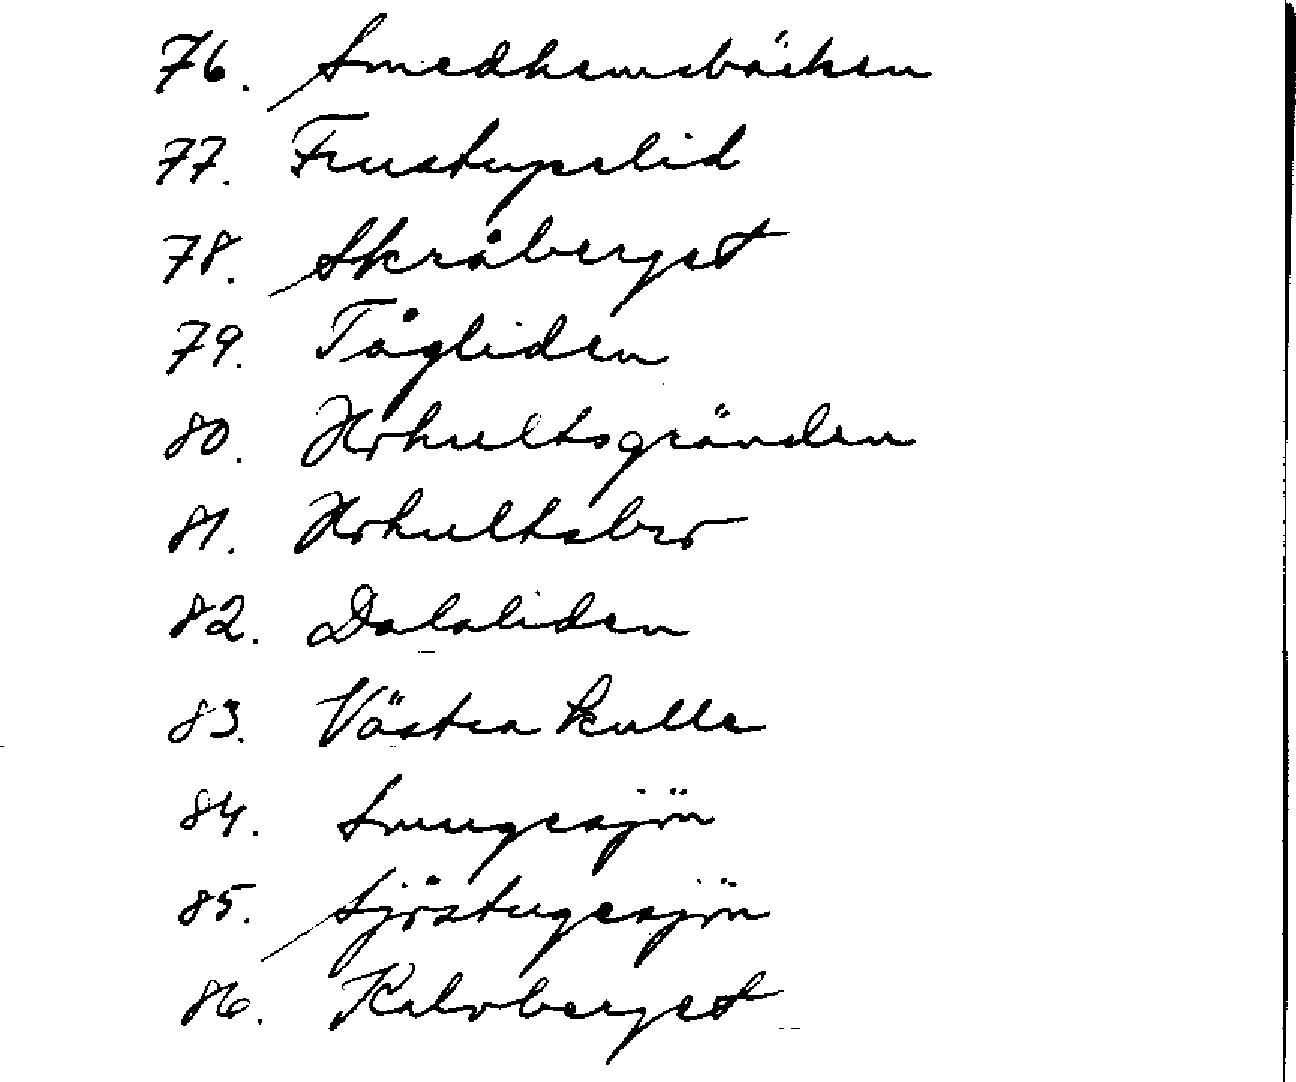 76. Smedhemsbäcken
77. Frustupslid
78. Skråberget
79. Tågliden
80. Horkultsgränden
81. Horkultsbro
82. Dalaliden
83. Västra kulle
84. Smugesjön
85. Sjöstugesjön
86. Kalvberget